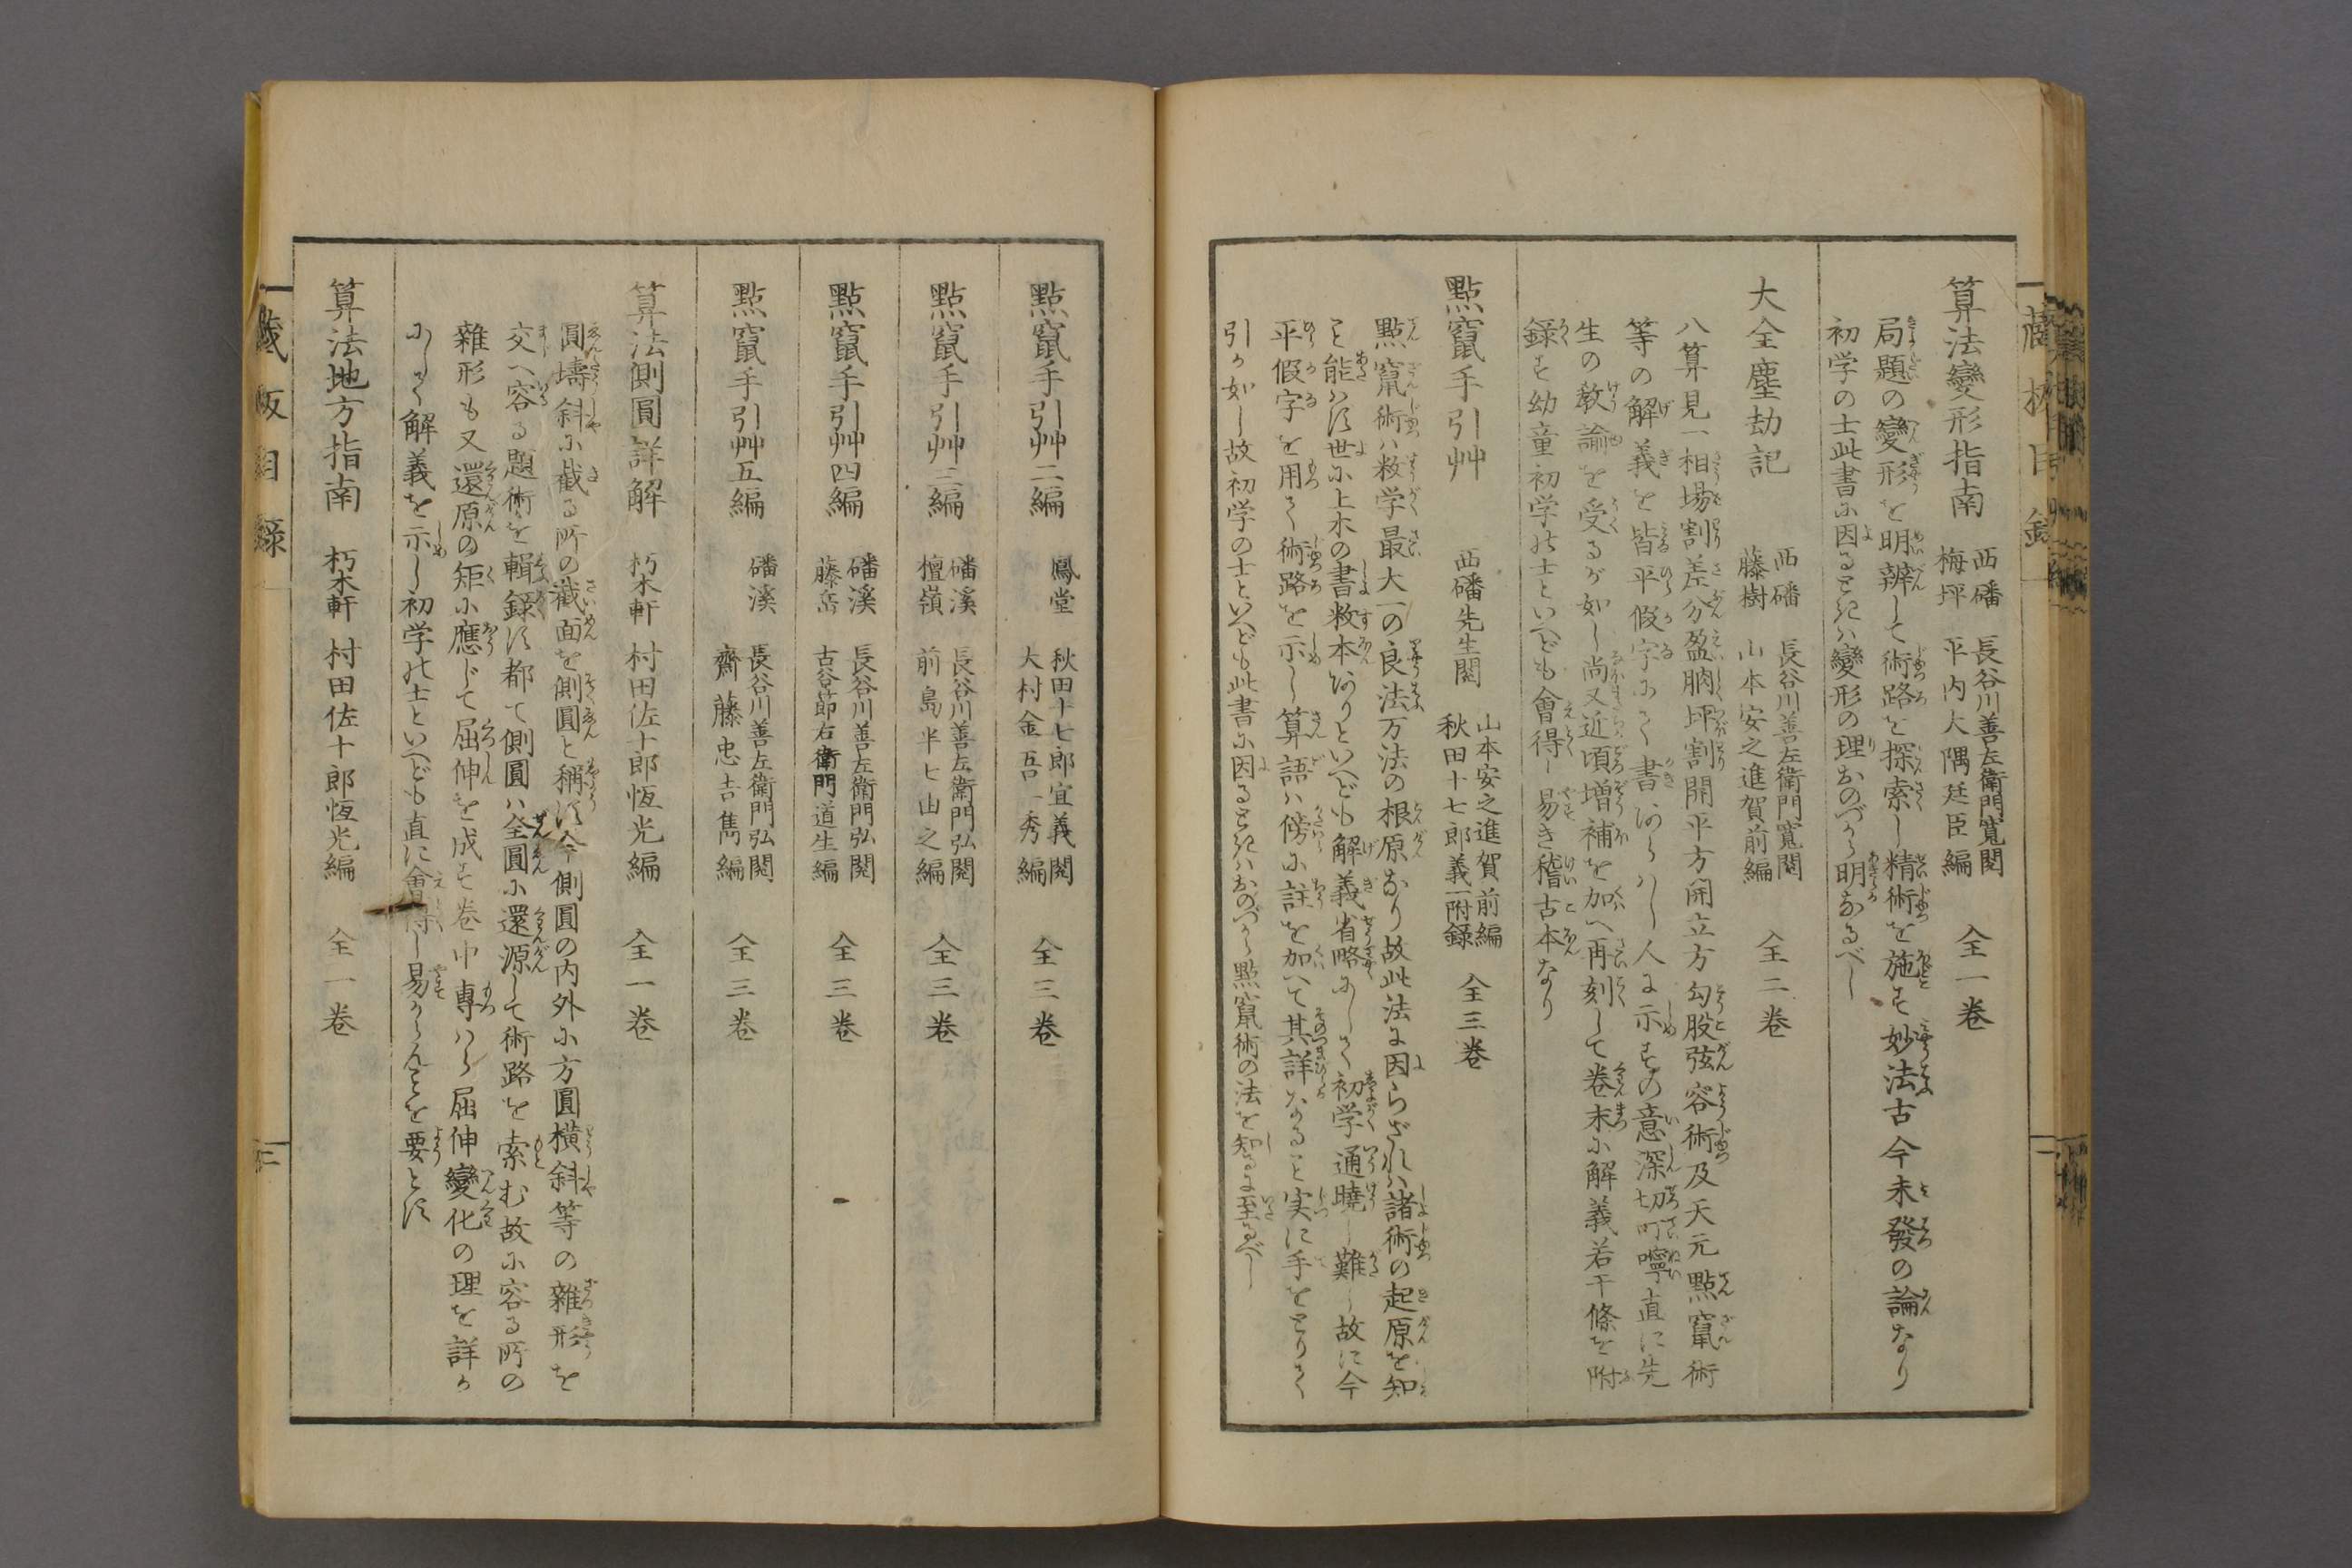 藏板目録
二
算法變形指南
西磻 長谷川善左衛門寛閲
梅坪 平内大隅廷臣編
全一卷
局題の變形を明辨して術路を探索し精術を施す妙法古今未發の論なり
初学の士此書に因るときハ變形の理おのづから明なるべし
大全塵劫記
西磻 長谷川善左衛門寛閲
藤樹 山本安之進賀前編
全二卷
八算見一相場割差分盈朒坪割開平方開立方勾股弦容術及天元點竄術
等の解義を皆平假字にて書あらハし人に示すの意深切叮嚀直に先
生の教諭を受るが如し尚又近頃増補を加へ再刻して卷末に解義若干條を附
録す幼童初学の士といへども會得し易き稽古本なり
點竄手引艸
西磻先生閲
山本安之進賀前編
秋田十七郎義一附録
全三卷
點竄術ハ数学最大一の良法万法の根原なり故此法に因らざれハ諸術の起原を知
こと能ハず世に上木の書数本ありといへども解義省略にして初学通曉し難し故に今
平假字を用て術路を示し算語ハ傍に註を加へて其詳なること実に手をとりて
引か如し故初学の士といへども此書に因るときハおのづから點竄術の法を知るに至るべし
點竄手引艸二編
鳳堂 秋田十七郎宜義閲
大村金吾一秀編
全三卷
點竄手引艸三編
磻溪 長谷川善左衛門弘閲
檀嶺 前島半七由之編
全三卷
點竄手引艸四編
磻溪 長谷川善左衛門弘閲
藤岳 古谷節右衛門道生編
全三卷
點竄手引艸五編
磻溪 長谷川善左衛門弘閲
齋藤忠吉雋編
全三卷
算法側圓詳解
朽木軒 村田佐十郎恆光編
全一卷
圓壔斜に截る所の截面を側圓と稱す今側圓の内外に方圓横斜等の雜形を
交へ容る題術を輯録す都て側圓ハ全圓に還源して術路を索む故に容る所の
雜形も又還原の矩に應じて屈伸を成す卷中專ハら屈伸變化の理を詳か
にして解義を示し初学の士といへども直に會得し易からんことを要とす
算法地方指南
朽木軒 村田佐十郎恆光編
全一卷
藏板目録
三